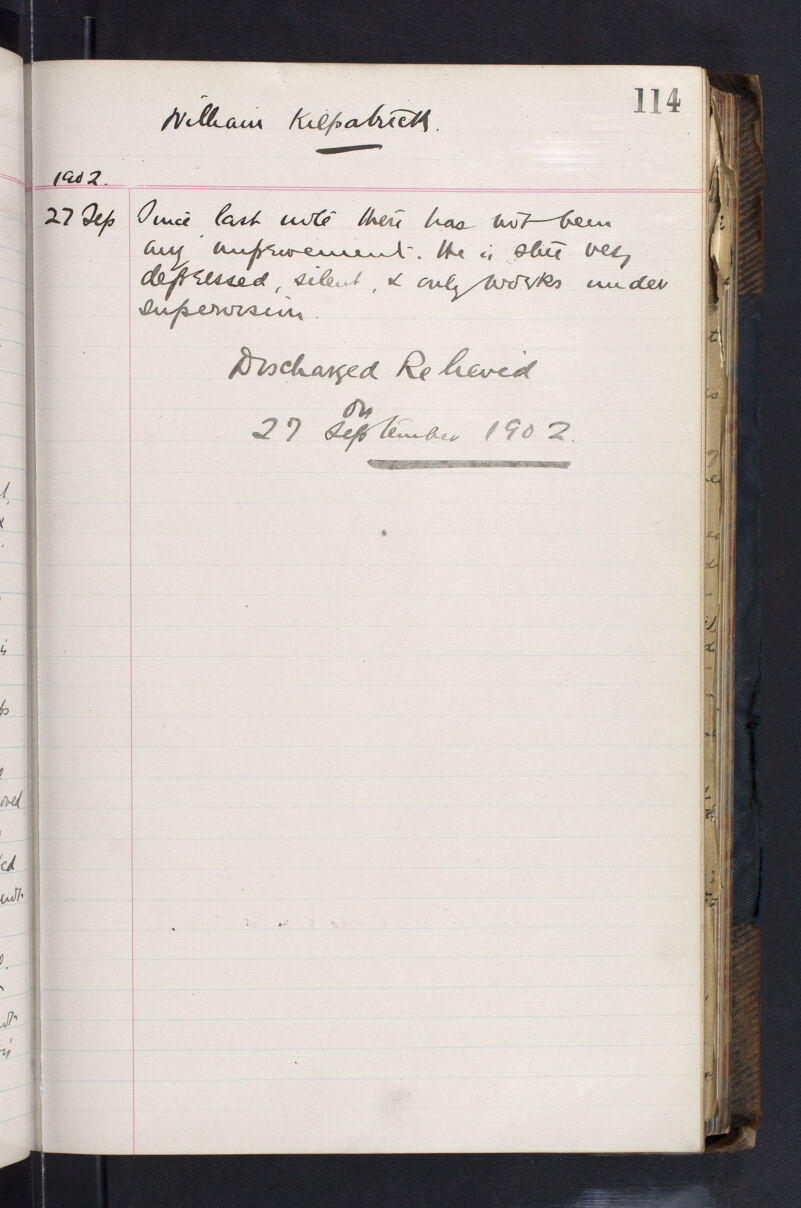 114
William Kilpatrick.
1902.
27 Sep Since last note there has not been
any improvement. He is still very
depressed, silent, & only works under
supervision.
Discharged Relieved
on
27 September 1902.